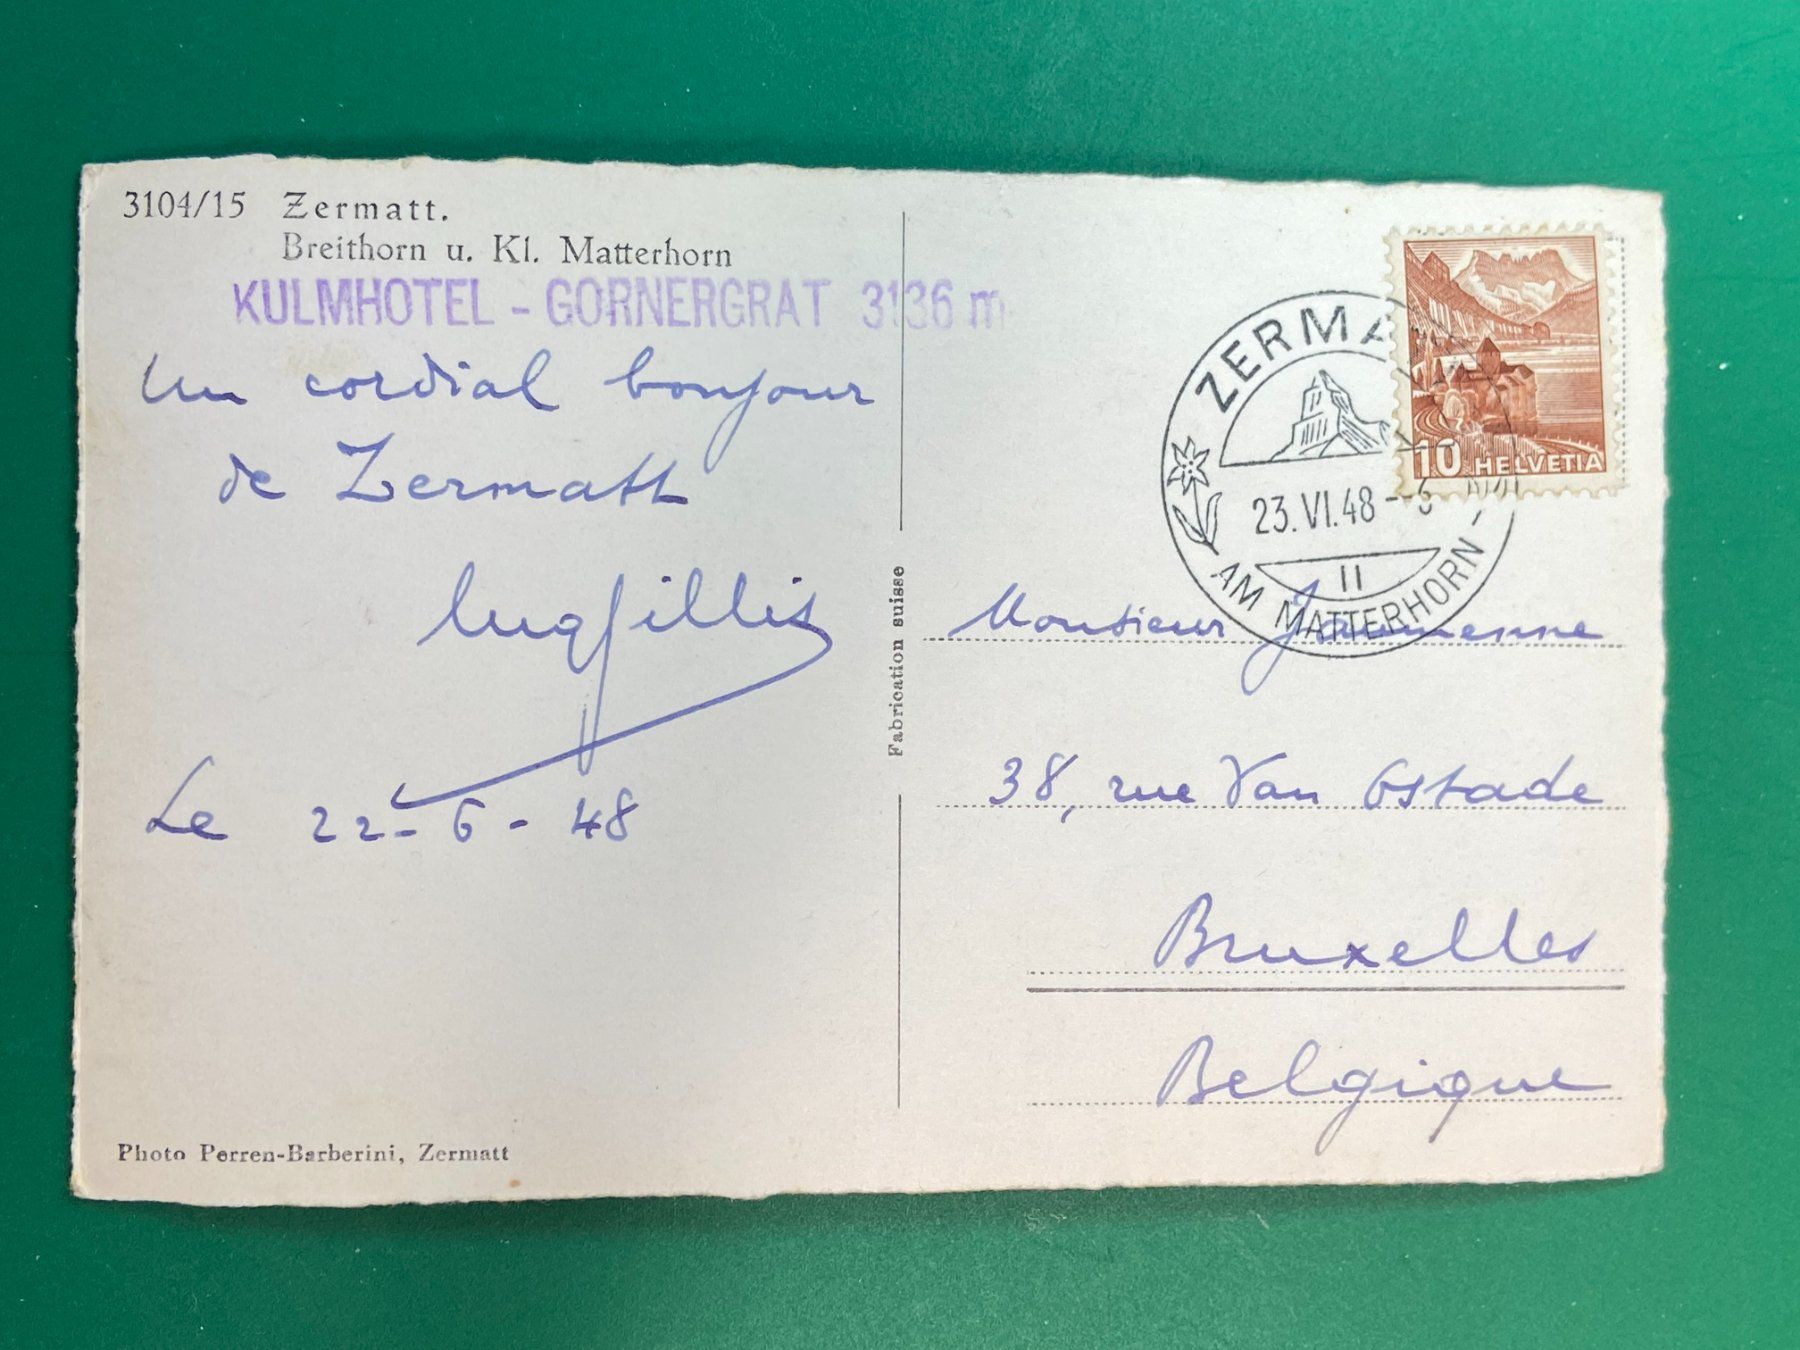 3104/15 Zermatt.
Breithorn u. Kl. Matterhorn
KULMHOTEL - GORNERGRAT 3136 m
Un cordial bonjour
de Zermatt
Le 22-6-48
Photo Perren-Barberini, Zermatt
Fabrication suisse
ZERMA
23.VI.48-
II
AM MATTERHORN -
10 HELVETIA
Monsieur
38, rue Van Ostade
Bruxelles
Belgique